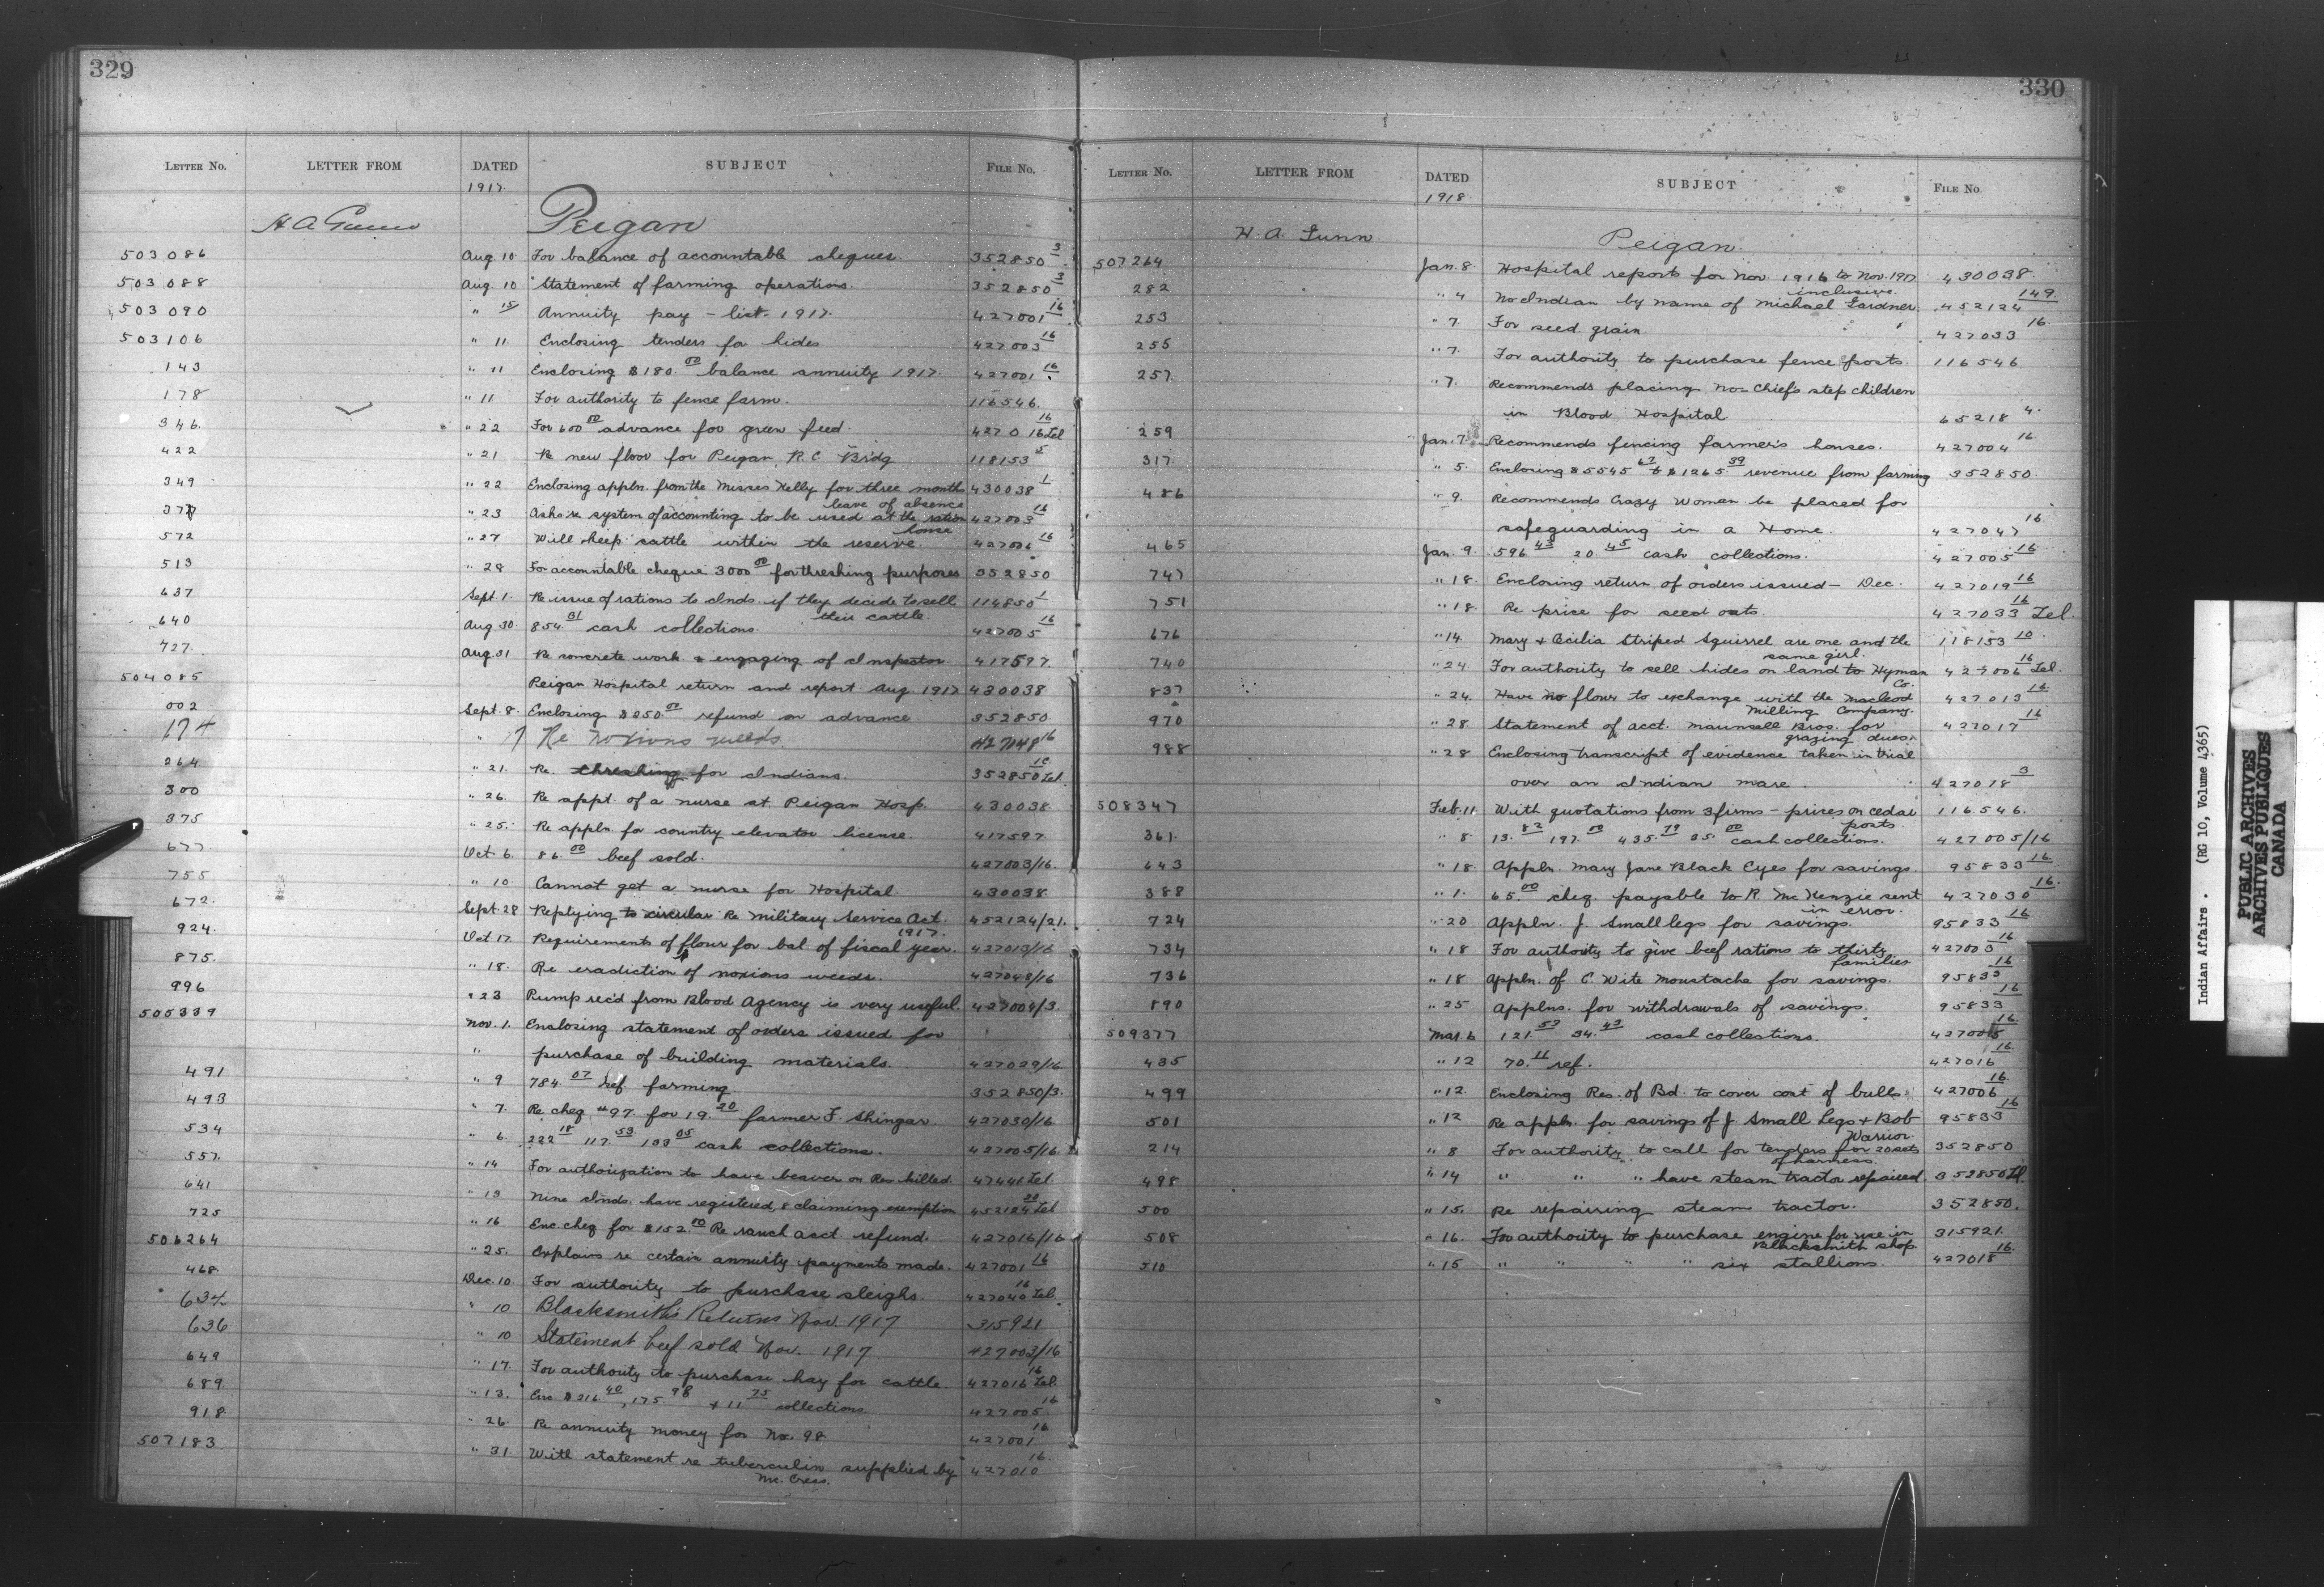 329
LETTER NO. LETTER FROM DATED SUBJECT FILE NO.
1917.
H A Gunn Peigan
503086 Aug. 10 For balance of accountable cheques. 352850 3
503088 Aug. 10 Statement of farming operations. 352850 3
503090 " 15 Annuity pay - list. 1917. 427001 16
503106 " 11 Enclosing tenders for hides 427003 16
143 " 11 Enclosing $180.00 balance annuity 1917. 427001 16
178 " 11 For authority to fence farm. 116546.
346. " 22 For 600 00 advance for green feed. 427016 16 Tel
422 " 21 Re new floor for Peigan, R.C. Bridg 118153 5
349 " 22 Enclosing appln. from the Misses Kelly for three months 430038 1
leave of absence
377 " 23 Asks re system of accounting to be used at the ration 427003 16
house
572 " 27 Will keep cattle within the reserve. 427006 16
513 " 28 For accountable cheque 3000 00 for threshing purposes 352850
637 Sept 1. Re issue of rations to Inds. if they decide to sell 114850 1
their cattle.
640 Aug. 30 854.31 cash collections. 427005 16
727. Aug. 31 Re concrete work & engaging of Inspector. 417597.
504085 Peigan Hospital return and report Aug. 1917 430038
002 Sept. 8. Enclosing $250.00 refund on advance. 352850.
174 " 17 Re noxious weeds. 427048 16
264 " 21. Re. threshing for Indians. 352850 16 Tel
300 " 26. Re appt. of a nurse at Peigan Hosp. 430038.
375 " 25. Re appln for country elevator license. 417597
677. Oct 6. 86.00 beef sold. 427003/16.
755 " 10 Cannot get a nurse for Hospital. 430038
672. Sept 28 Replying to circular Re Military Service Act. 452124/21.
1917.
924. Oct 17 Requirements of flour for bal of fiscal year. 427013/16
875. " 18. Re eradiction of noxious weeds. 427048/16
996 " 23 Pump rec'd from Blood Agency is very useful. 427004/3.
505339 Nov. 1. Enclosing statement of orders issued for
" purchase of building materials. 427029/16
491 " 9 784.07 ref. farming 352850/3.
493 " 7. Re cheq #97. for 19.20 farmer F. Shingar. 427030/16
534 " 6. 222 18 117.53 133 05 cash collections. 427005/16.
557. " 14 For authorization to have beaver on Res killed. 47446 Tel
641 " 13. Nine Inds. have registered, 8 claiming exemption 452124 20 Tel
725 " 16 Enc. cheq for $152.10 Re ranch acct. refund. 427016/16
506264 " 25. Explains re certain annuity payments made. 427001 16
468. Dec. 10. For authority to purchase sleighs. 427040 16 Tel.
634 " 10 Blacksmith's Returns Nov. 1917 315921
636 " 10 Statement beef sold Nov. 1917 427003/16
649 " 17. For authority to purchase hay for cattle. 427016 16 Tel.
689. " 13. Enc. $216 40, 175 98 + 11 75 collections. 427005 16
918. " 26. Re annuity money for No. 98 427001 16
507183 " 31 With statement re tuberculin supplied by 427010 16.
Mr. Cress.
330
LETTER NO. LETTER FROM DATED SUBJECT FILE NO.
1918
H. A. Gunn. Peigan.
507264 Jan. 8. Hospital reports for Nov. 1916 to Nov. 1917 430038.
inclusive.
282 " 4 No Indian by name of Michael Gardner. 452124 149.
253 " 7. For seed grain 427033 16.
255 " 7. For authority to purchase fence posts. 116546
257. " 7. Recommends placing No-Chief's step children
in Blood Hospital 65218 4.
259 Jan. 7. Recommends fencing farmer's houses. 427004 16.
317. " 5. Enclosing $5545 67 & $1265.39 revenue from farming 352850.
486 " 9. Recommends Crazy Woman be placed for
safeguarding in a Home. 427047 16.
465 Jan. 9. 596 43 20.45 cash collections. 427005 16
747 " 18. Enclosing return of orders issued - Dec. 427019 16
751 " 18. Re price for seed oats. 427033 16 Tel.
676 " 14. Mary & Cecilia Striped Squirrel are one and the 118153 10.
same girl.
740 " 24. For authority to sell hides on land to Hyman 427006 16 Tel.
Co.
837 " 24. Have no flour to exchange with the Macleod 427013 16.
Milling Company.
970 " 28 Statement of acct. Maunsell Bros. for 427017 16
grazing dues.
988 " 28 Enclosing transcript of evidence taken in trial
over an Indian mare. 427018 3
508347 Feb. 11. With quotations from 3 firms - prices on cedar 116546.
posts.
361. " 8 13.82 197.00 435.79 35.00 cash collections. 427005/16
643 " 18. Appln. Mary Jane Black Eyes for savings. 95833 16.
388 " 1. 65.00 cheq. payable to R. McKenzie sent 427030 16.
in error.
724 " 20 Appln. J. Smalllegs for savings. 95833 16
734 " 18 For authority to give beef rations to thirty 427003 16
families
736 " 18 Appln. of C. Wite Moustache for savings. 95833 16
890 " 25 Applns. for withdrawals of savings. 95833 16
509377 Mar. 6 121.53 34.43 cash collections. 427005 16
435 " 12 70.16 ref. 427016 16.
499 " 12 Enclosing Res. of Bd. to cover cost of bulls. 427006 16.
501 " 12 Re appln. for savings of J. Small Legs & Bob 95833 16
Warrior.
214 " 8 For authority to call for tenders for 20 sets 352850
of harness.
498 " 14 " " " have steam tractor repaired. 352850 Tel.
500 " 15. Re repairing steam tractor. 352850.
508 " 16. For authority to purchase engine for use in 315921.
Blacksmith shop.
510 " 15 " " " " six stallions. 427018 16.
Indian Affairs. (RG 10, Volume 4365)
PUBLIC ARCHIVES
ARCHIVES PUBLIQUES
CANADA